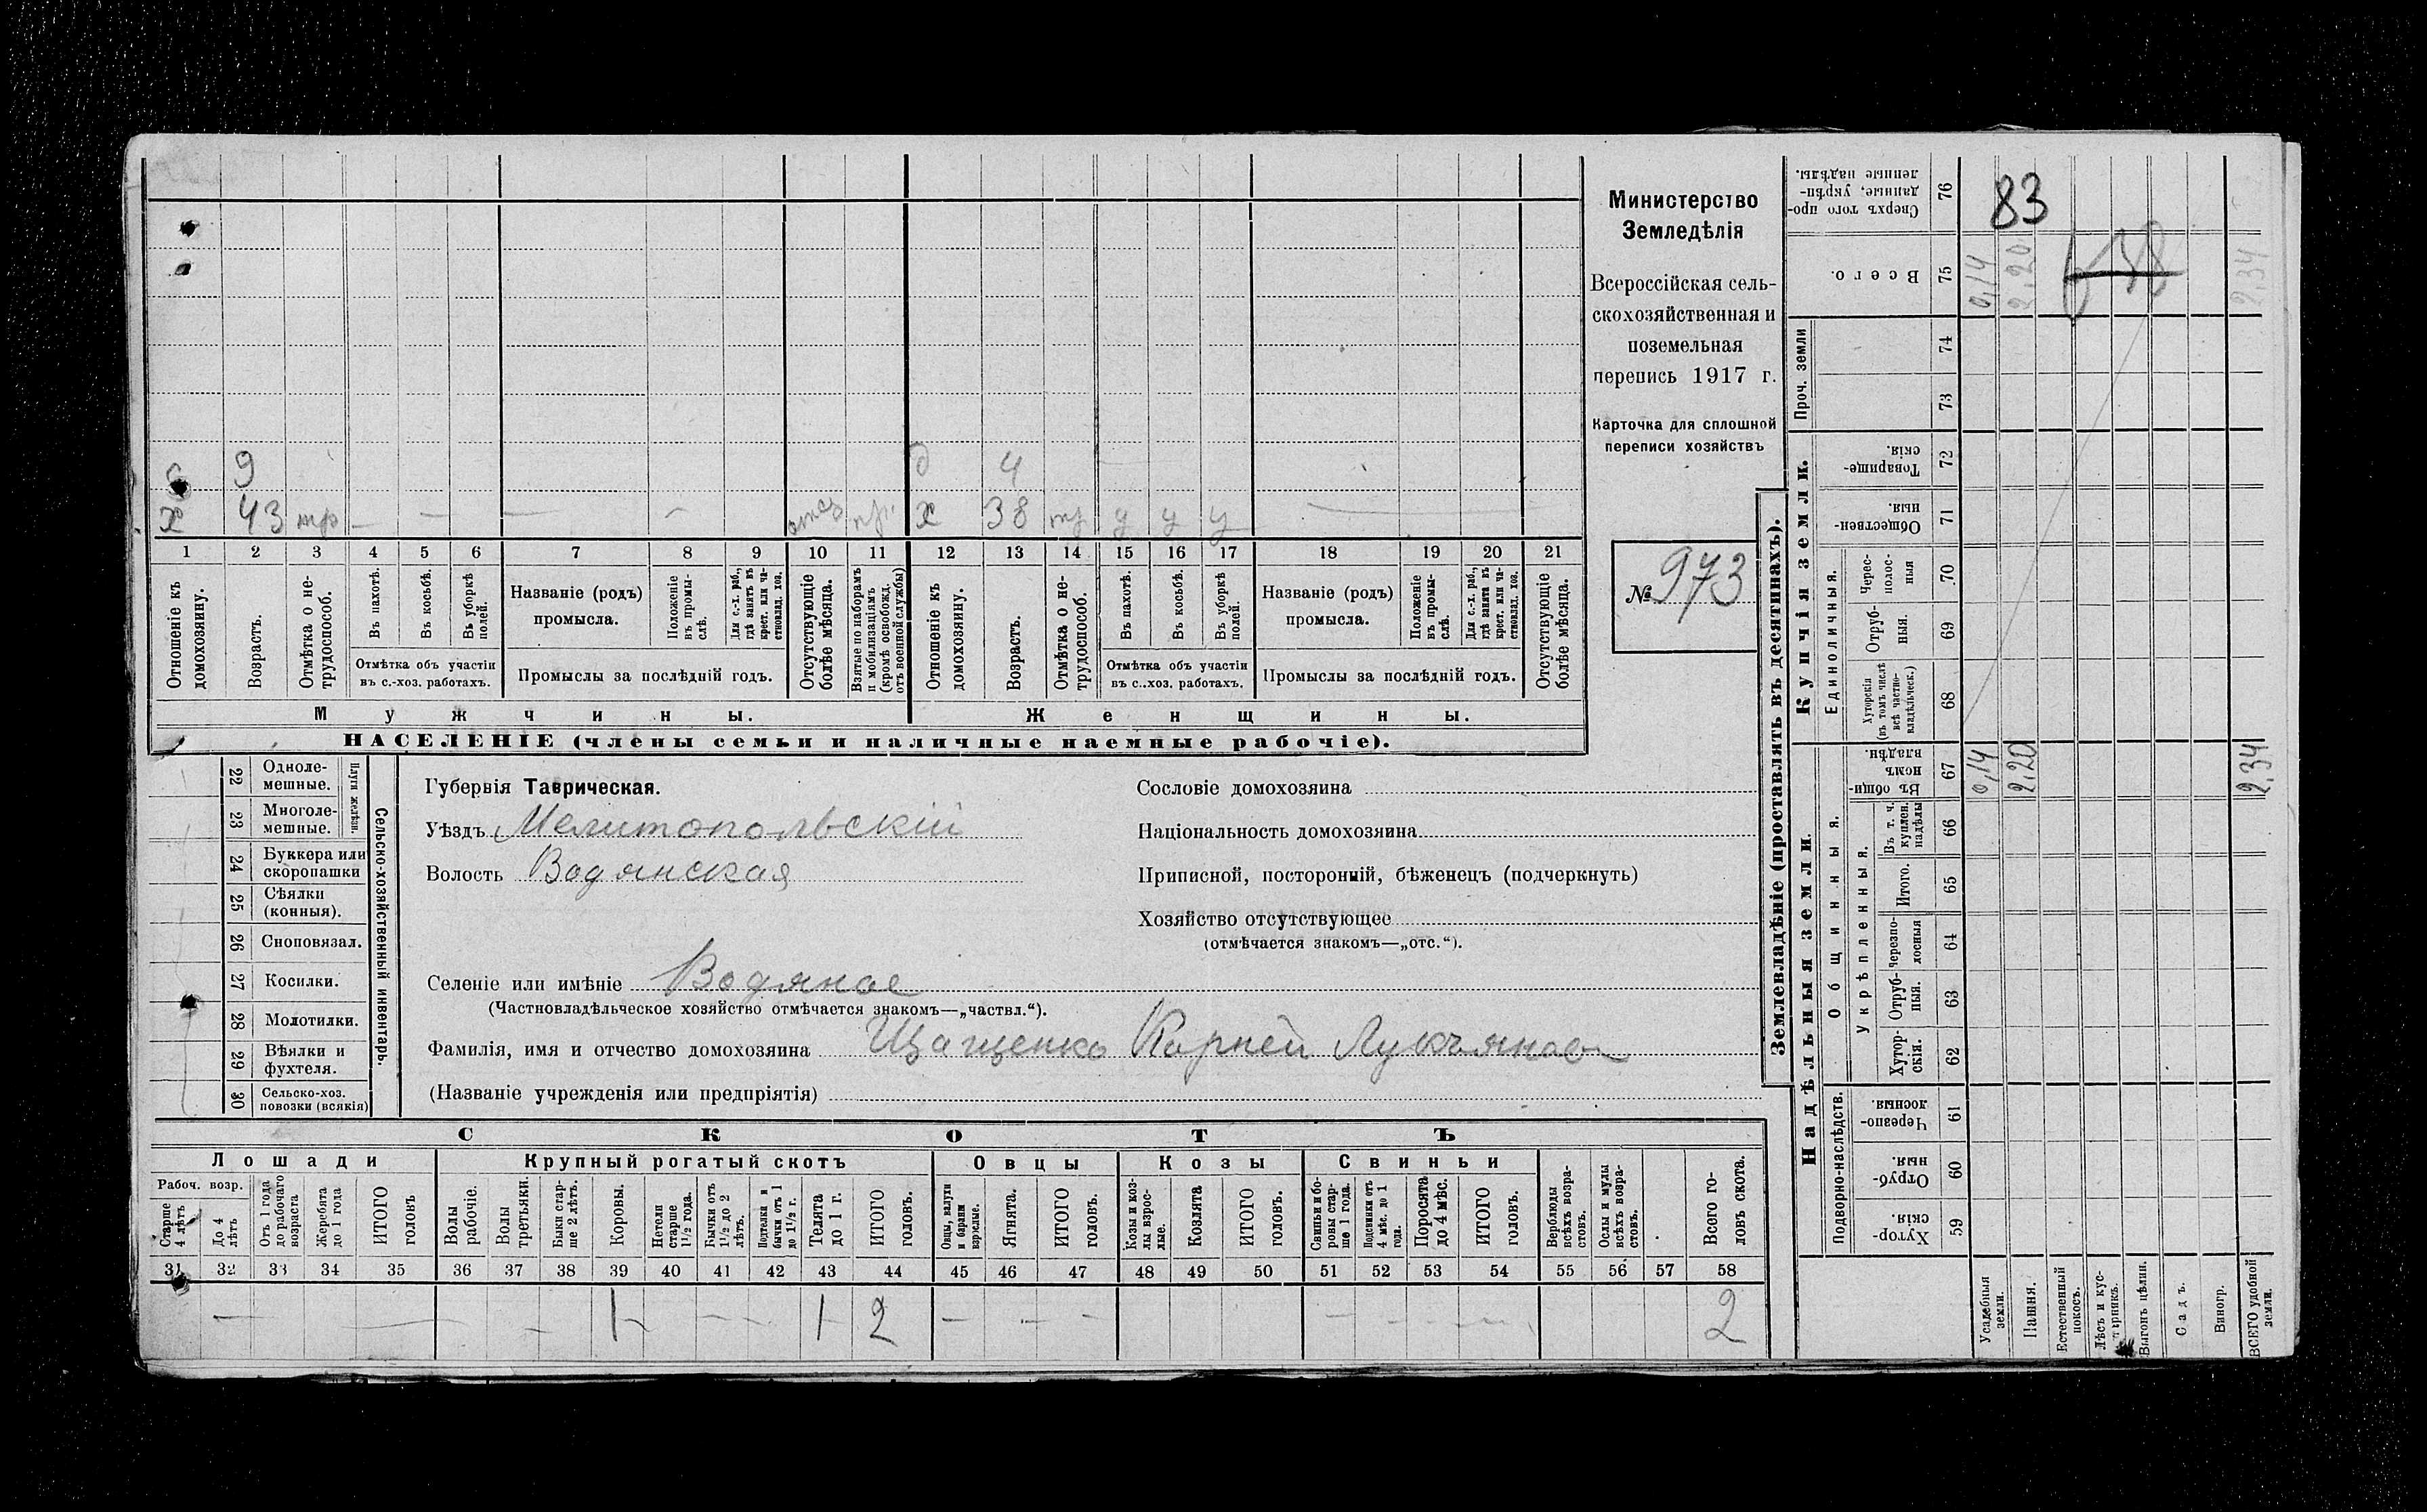 83
Министерство
Земледѣлія
Всероссійская сель-
скохозяйственная и
поземельная
перепись 1917 г.
Карточка для сплошной
переписи хозяйствъ
№ 973
9 д 4
х 43 тр — — — — отсз пр. х 38 тр у у у —
1 2 3 4 5 6 7 8 9 10 11 12 13 14 15 16 17 18 19 20 21
Отношеніе къ домохозяину.
Возрастъ.
Отмѣтка о не-трудоспособ.
Въ пахотѣ.
Въ косьбѣ.
Въ уборкѣ полей.
Отмѣтка объ участіи
въ с.-хоз. работахъ.
Названіе (родъ)
промысла.
Положеніе въ промы-слѣ.
Для с.-х. раб., гдѣ занятъ въ крест. или ча-стновлад. хоз.
Промыслы за послѣдній годъ.
Отсутствующіе болѣе мѣсяца.
Взятые по наборамъ и мобилизаціямъ (кромѣ освобожд. отъ военной службы)
Отношеніе къ домохозяину.
Возрастъ.
Отмѣтка о не-трудоспособ.
Въ пахотѣ.
Въ косьбѣ.
Въ уборкѣ полей.
Отмѣтка объ участіи
въ с.-хоз. работахъ.
Названіе (родъ)
промысла.
Положеніе въ промы-слѣ.
Для с.-х. раб., гдѣ занята въ крест. или ча-стновлад. хоз.
Промыслы за послѣдній годъ.
Отсутствующіе болѣе мѣсяца.
Мужчины. Женщины.
НАСЕЛЕНІЕ (члены семьи и наличные наемные рабочіе).
Сельско-хозяйственный инвентарь.
Плуги желѣзн.
22 Одноле-мешные.
23 Многоле-мешные.
24 Буккера или скоропашки
25 Сѣялки (конныя).
26 Сноповязал.
27 Косилки.
28 Молотилки.
29 Вѣялки и фухтеля.
30 Сельско-хоз. повозки (всякія)
Губернія Таврическая.
Уѣздъ Мелитопольскій
Волость Водянская
Селеніе или имѣніе Водяное
(Частновладѣльческое хозяйство отмѣчается знакомъ—„частвл.“).
Фамилія, имя и отчество домохозяина Щащенко Корней Лукьянов
(Названіе учрежденія или предпріятія)
Сословіе домохозяина
Національность домохозяина
Приписной, посторонній, бѣженецъ (подчеркнуть)
Хозяйство отсутствующее
(отмѣчается знакомъ—„отс.“).
СКОТЪ
Лошади Крупный рогатый скотъ Овцы Козы Свиньи
Рабоч. возр.
Старше 4 лѣтъ
До 4 лѣтъ
Отъ 1 года до рабочаго возраста
Жеребята до 1 года
ИТОГО головъ
Волы рабочіе.
Волы третьяки.
Быки стар-ше 2 лѣтъ.
Коровы.
Нетели старше 1½ года.
Бычки отъ 1½ до 2 лѣтъ.
Подтелки и бычки отъ 1 до 1½ г.
Телята до 1 г.
ИТОГО головъ.
Овцы, валухи и бараны взрослые.
Ягнята.
ИТОГО головъ.
Козы и коз-лы взрос-лые.
Козлята
ИТОГО головъ.
Свиньи и бо-ровы стар-ше 1 года.
Подсвинки отъ 4 мѣс. до 1 года.
Поросята до 4 мѣс.
ИТОГО головъ.
Верблюды всѣхъ возра-стовъ.
Ослы и мулы всѣхъ возра-стовъ.
Всего го-ловъ скота.
31 32 33 34 35 36 37 38 39 40 41 42 43 44 45 46 47 48 49 50 51 52 53 54 55 56 57 58
— — — 1 — — 1 2 — — — — — — 2
Землевладѣніе (проставлять въ десятинахъ).
Надѣльныя земли.
Купчія земли.
Проч. земли
Подворно-наслѣдств.
Общинныя.
Укрѣпленныя.
Единоличныя.
76 Сверхъ того про-данные, укрѣп-ленные надѣлы.
75 Всего.
74
73
72 Товарище-скія.
71 Обществен-ныя.
70 Черес-полос-ныя
69 Отруб-ныя.
68 Хуторскія (въ томъ числѣ всѣ частно-владѣльческ.)
67 Въ общин-номъ владѣн.
66 Въ т. ч. куплен. надѣлы
65 Итого.
64 Черезпо-лосныя
63 Отруб-ныя.
62 Хутор-скія.
61 Черезпо-лосныя.
60 Отруб-ныя.
59 Хутор-скія.
0,14 2,20 2,34
0,14 2,20 2,34
Усадебныя земли.
Пашня.
Естественный покосъ.
Лѣсъ и кус-тарникъ.
Выгонъ цѣлин.
Садъ.
Виногр.
ВСЕГО удобной земли.